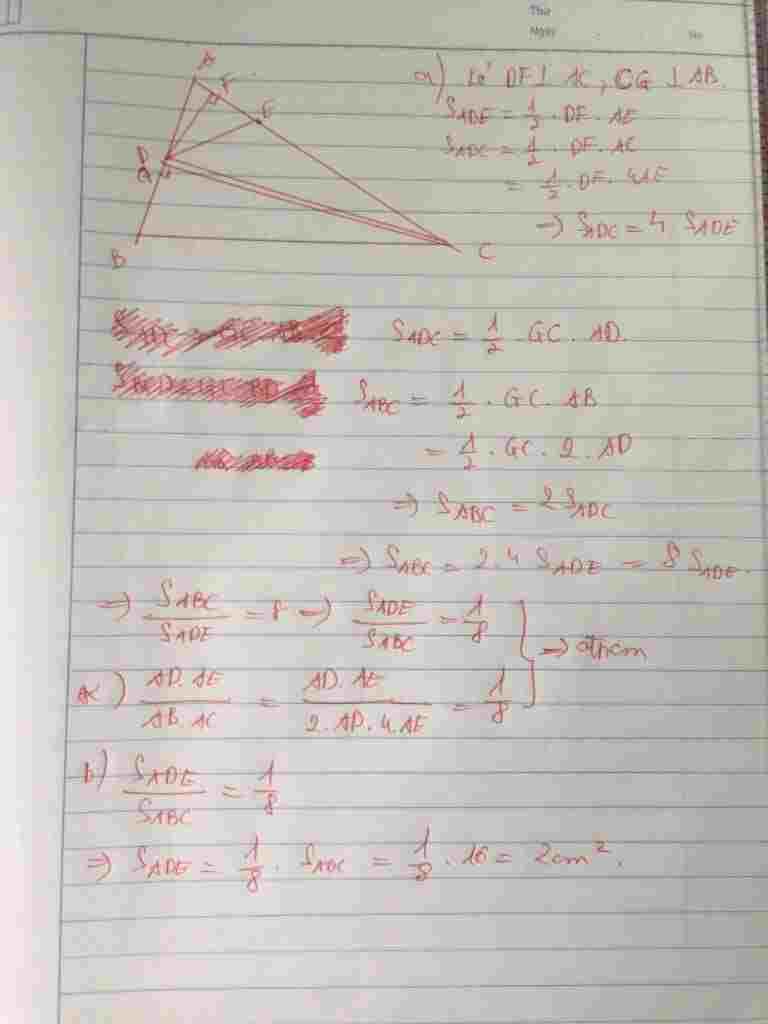 Thứ
Ngày
No
A
F
E
D
G
B
C
a) Kẻ DF ⊥ AC, CG ⊥ AB.
S_ADE = 1/2 · DF. AE
S_ADC = 1/2 · DF. AC
= 1/2 · DF. 4AE
=> S_ADC = 4 S_ADE
S_ADC = 1/2 · GC. AD.
S_ABC = 1/2 · GC. AB
= 1/2 · GC. 2. AD
=> S_ABC = 2 S_ADC
=> S_ABC = 2.4 S_ADE = 8 S_ADE.
=> S_ABC/S_ADE = 8 => S_ADE/S_ABC = 1/8
) AD.AE/AB.AC = AD.AE/2.AD.4.AE = 1/8 } => đpcm
b) S_ADE/S_ABC = 1/8
=> S_ADE = 1/8 · S_ABC = 1/8 · 16 = 2cm².